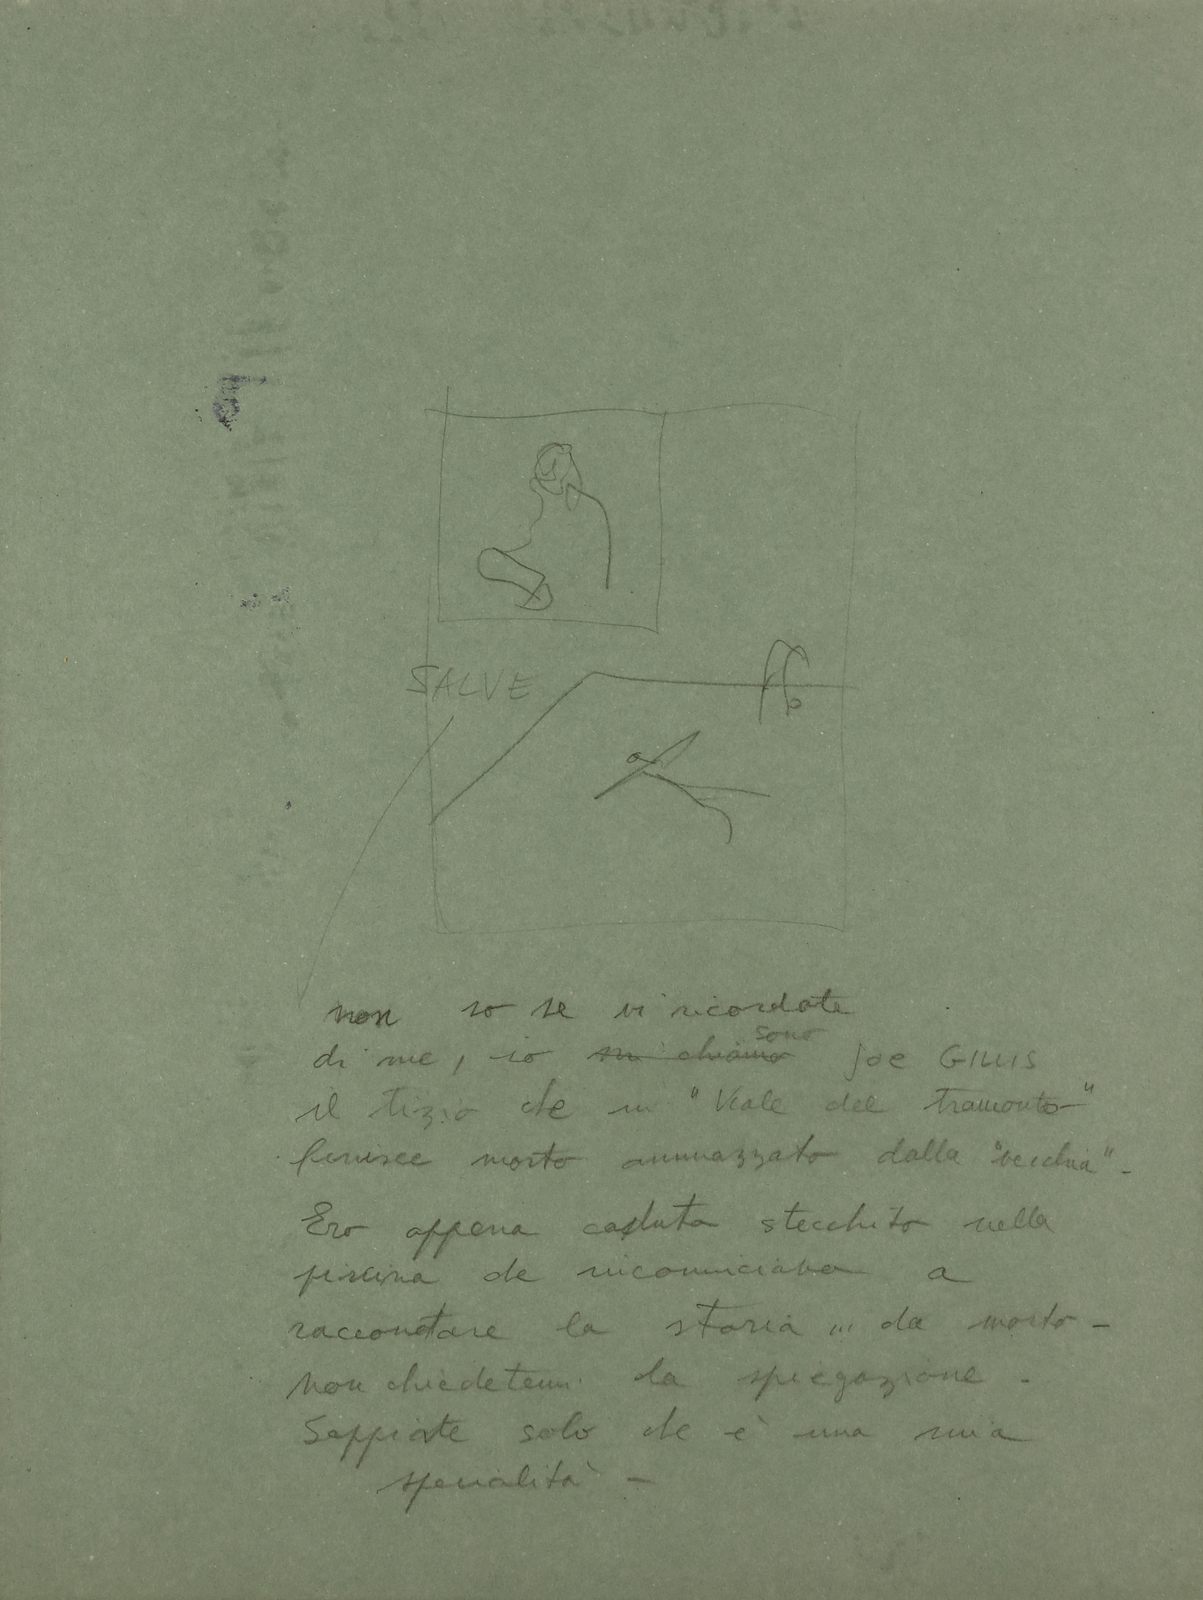 SALVE
non so se vi ricordate
di me, io mi chiamo sono Joe GILLIS
il tizio che in "Viale del tramonto"
finisce morto ammazzato dalla "vecchia" -
Ero appena caduto stecchito nella
piscina che ricominciavo a
raccontare la storia ... da morto -
Non chiedetemi la spiegazione -
Sappiate solo che è una mia
specialità -